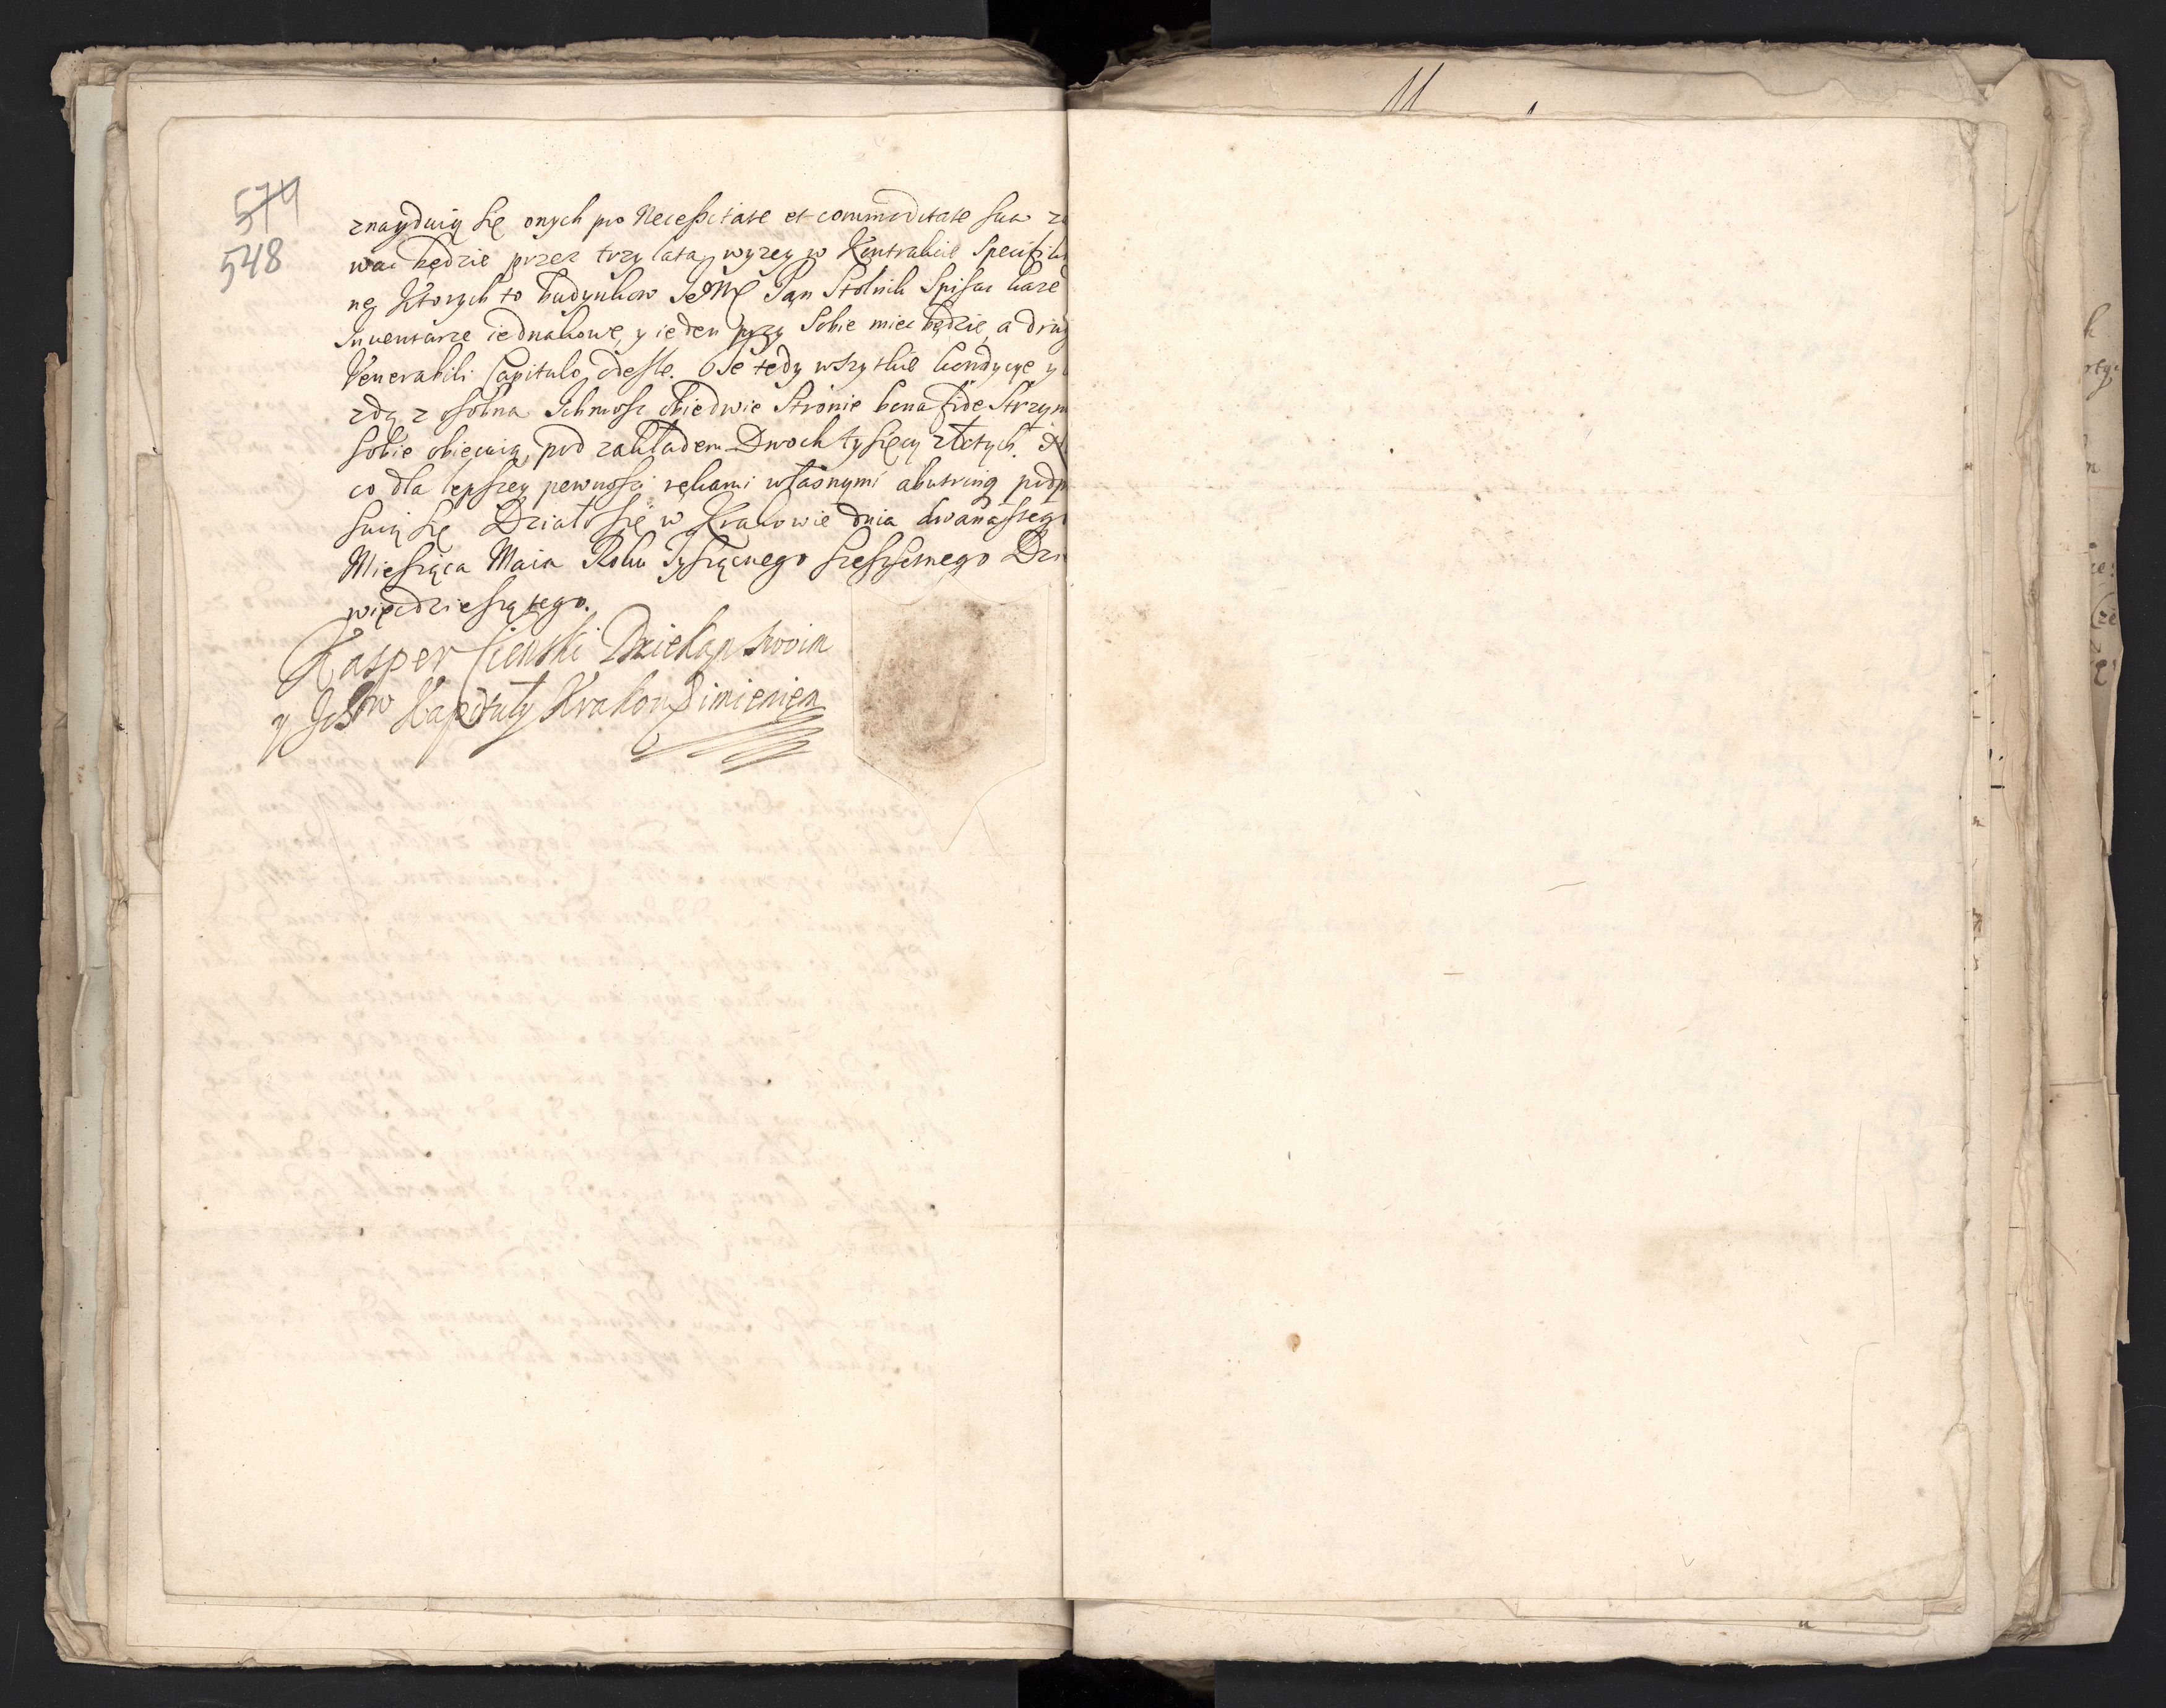 574
548
znayduią się onych pro Necessitate et commoditate sua
wać będzie przez trzy lata, wyzey w Kontrakcie Specifik
ne Których to budynkow JeMć Pan Stolnik Spisac kaze
Inwentarze iednakowe, y ieden przy Sobie miec będzie, a drug
Venerabili Capitulo odesle. Te tedy wszytkie kondycye y
zdą z osobna Ichmość obiedwie Stronie bona fide Strzym
sobie obiecuią, pod zakładem Dwoch tysięcy złotych.
co dla lepszey pewnosci rękami własnymi podp
suią się Działo się w Krakowie dnia dwanastego
Miesiąca Maia Roku Tysiącnego szescsetnego Dzi
więcdziesiątego.
Kasper Cieński Dziekan swoim
y Kapituły Krakow imieniem